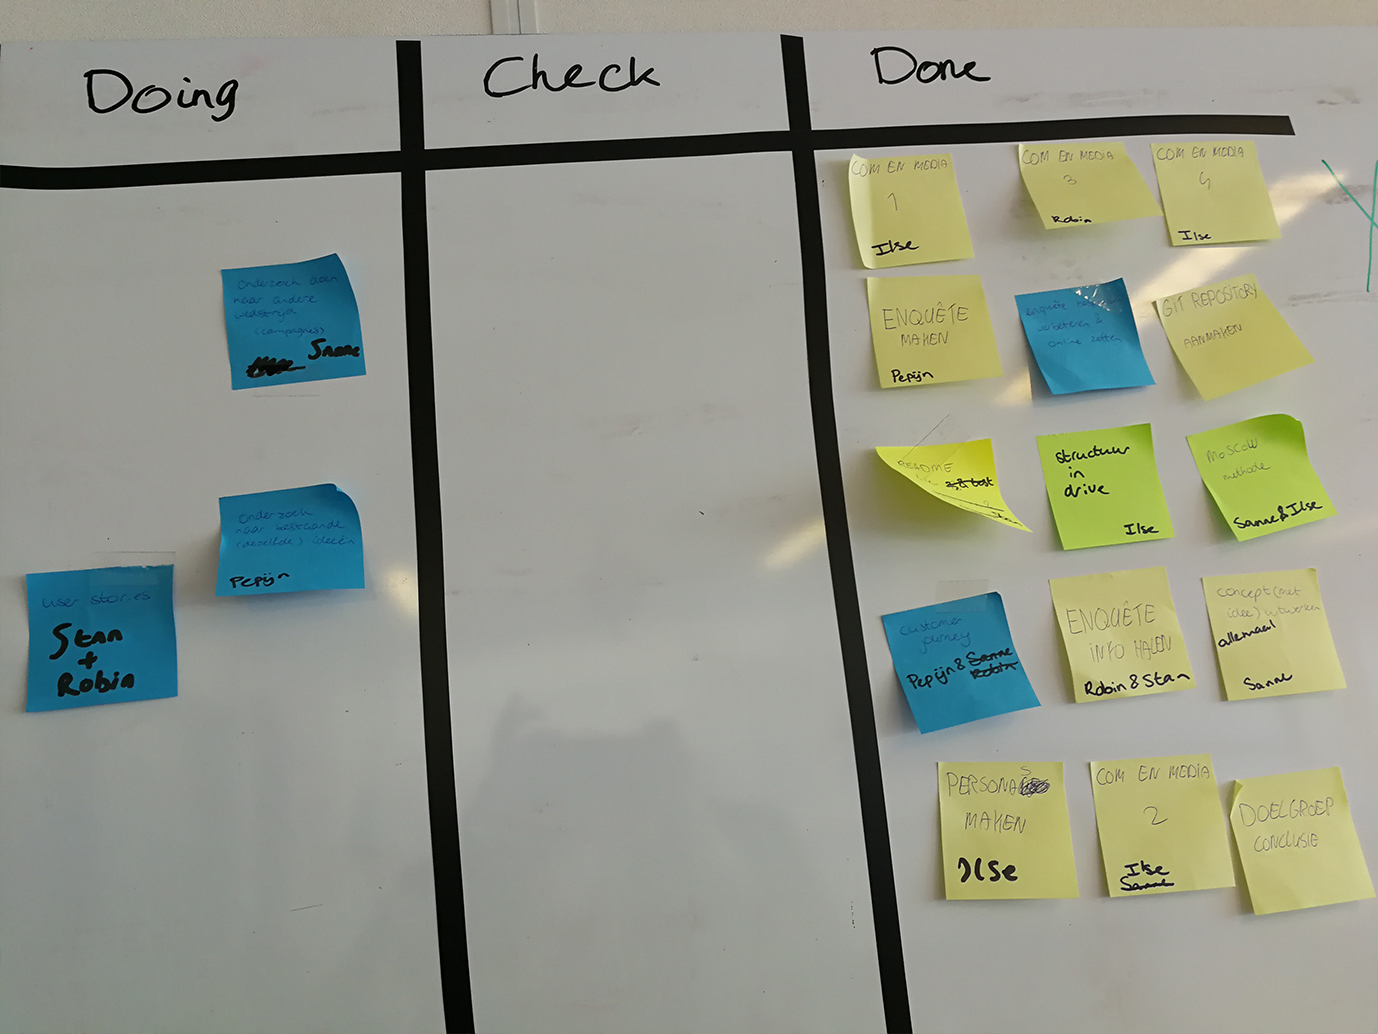 Doing
Check
Done
onderzoek doen
naar andere
wedstrijd
(campagnes)
Sanne
onderzoek
naar bestaande
(dezelfde) ideeën
Pepijn
user stories
Stan
+
Robin
COM EN MEDIA
1
Ilse
COM EN MEDIA
3
Robin
COM EN MEDIA
4
Ilse
ENQUÊTE
MAKEN
Pepijn
enquête
verbeteren &
online zetten
GIT REPOSITORY
AANMAKEN
README
structuur
in
drive
Ilse
MoSCoW
methode
Sanne & Ilse
customer
journey
Pepijn & Sanne
Robin
ENQUÊTE
INFO HALEN
Robin & Stan
concept (met
idee) uitwerken
allemaal
Sanne
PERSONAS
MAKEN
Ilse
COM EN MEDIA
2
Ilse
Sanne
DOELGROEP
CONCLUSIE